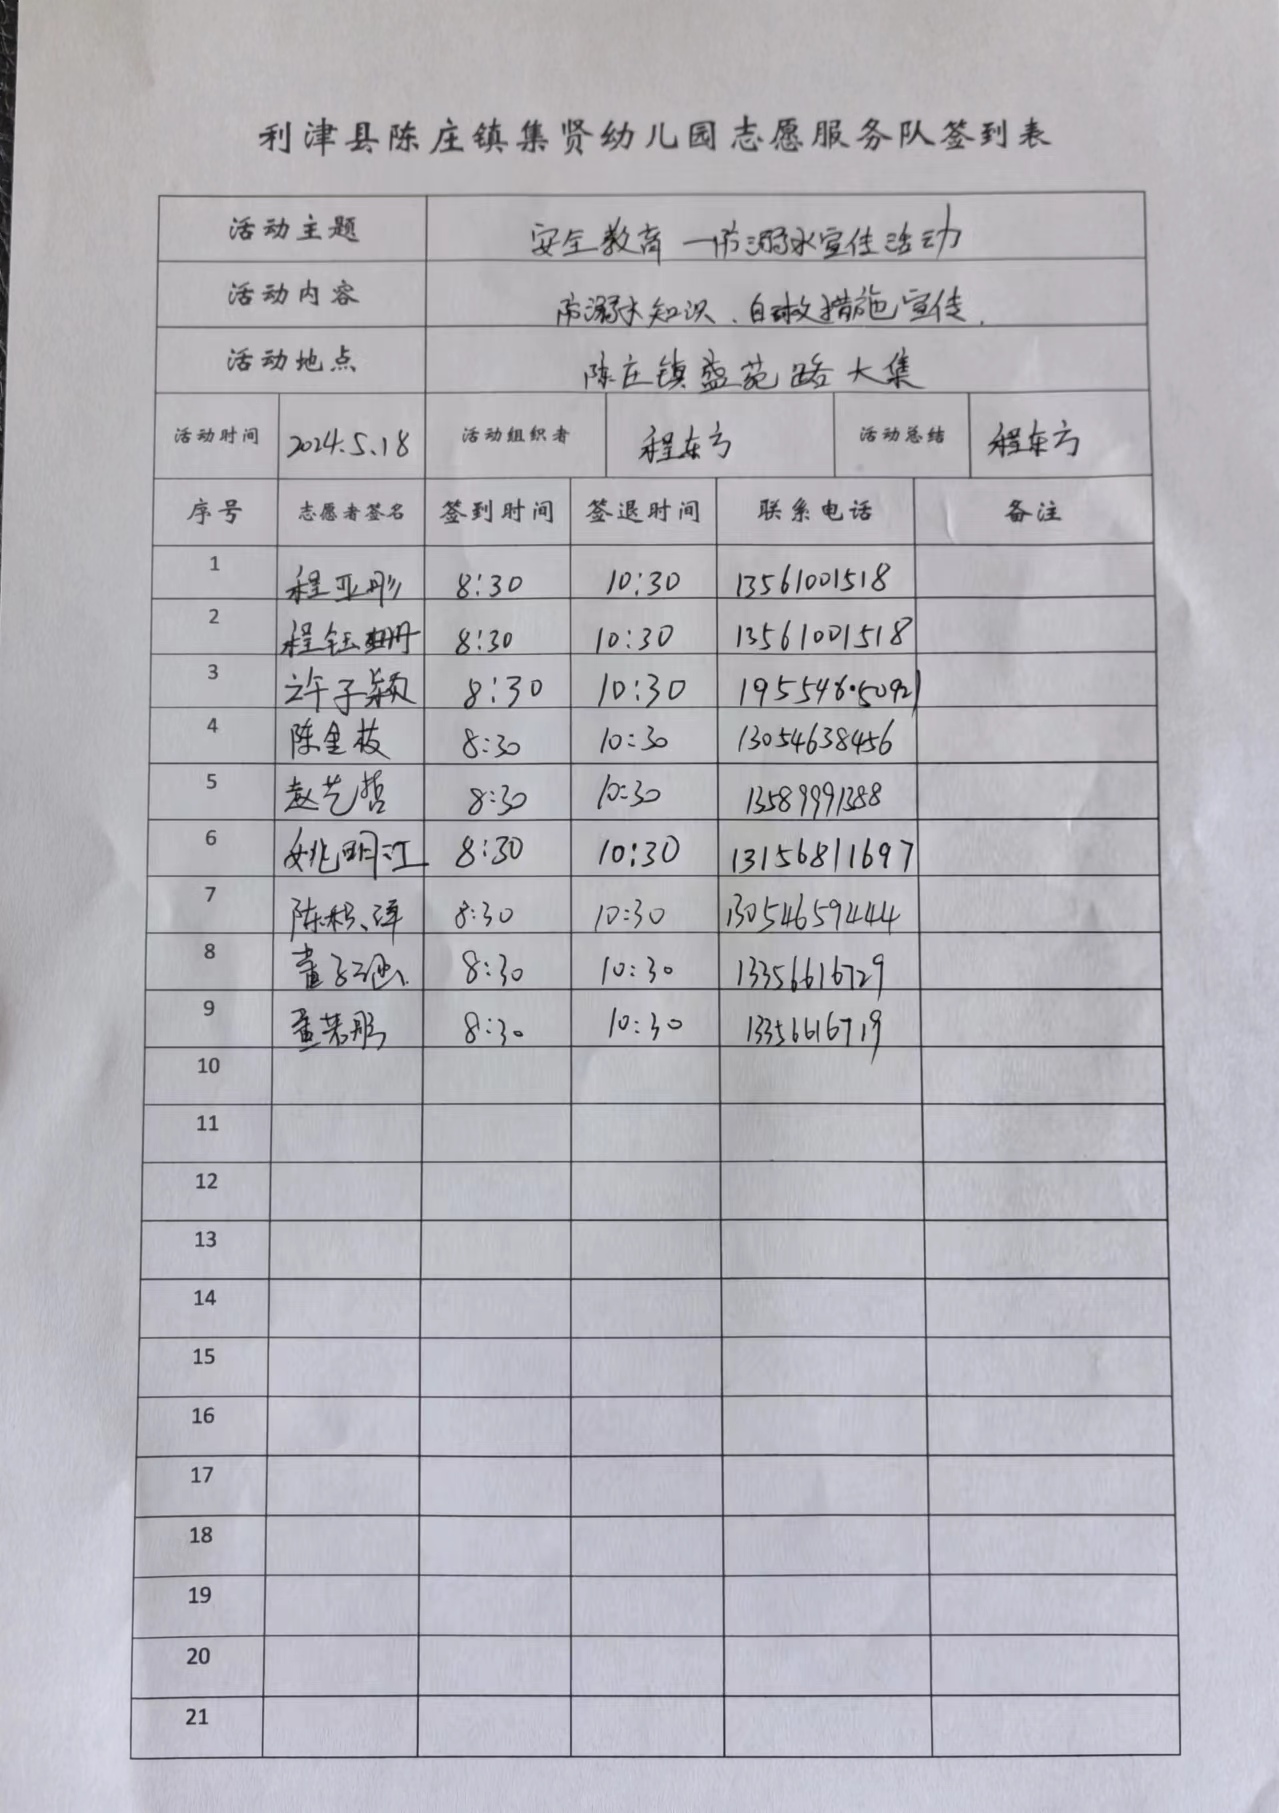 利津县陈庄镇集贤幼儿园志愿服务队签到表
活动主题 安全教育一防溺水宣传活动
活动内容 防溺水知识、自救措施宣传.
活动地点 陈庄镇盛苑路大集
活动时间 2024.5.18 活动组织者 程东方 活动总结 程东方
序号 志愿者签名 签到时间 签退时间 联系电话 备注
1 程亚彤 8:30 10:30 13561001518
2 程钰珊 8:30 10:30 13561001518
3 许子颖 8:30 10:30
4 陈金枝 8:30 10:30 13054638456
5 赵艺哲 8:30 10:30 13589991388
6 姚明江 8:30 10:30 13156811697
7 陈 泽 8:30 10:30 13054659444
8 董子涵 8:30 10:30 13356616729
9 董 彤 8:30 10:30 13356616719
10
11
12
13
14
15
16
17
18
19
20
21